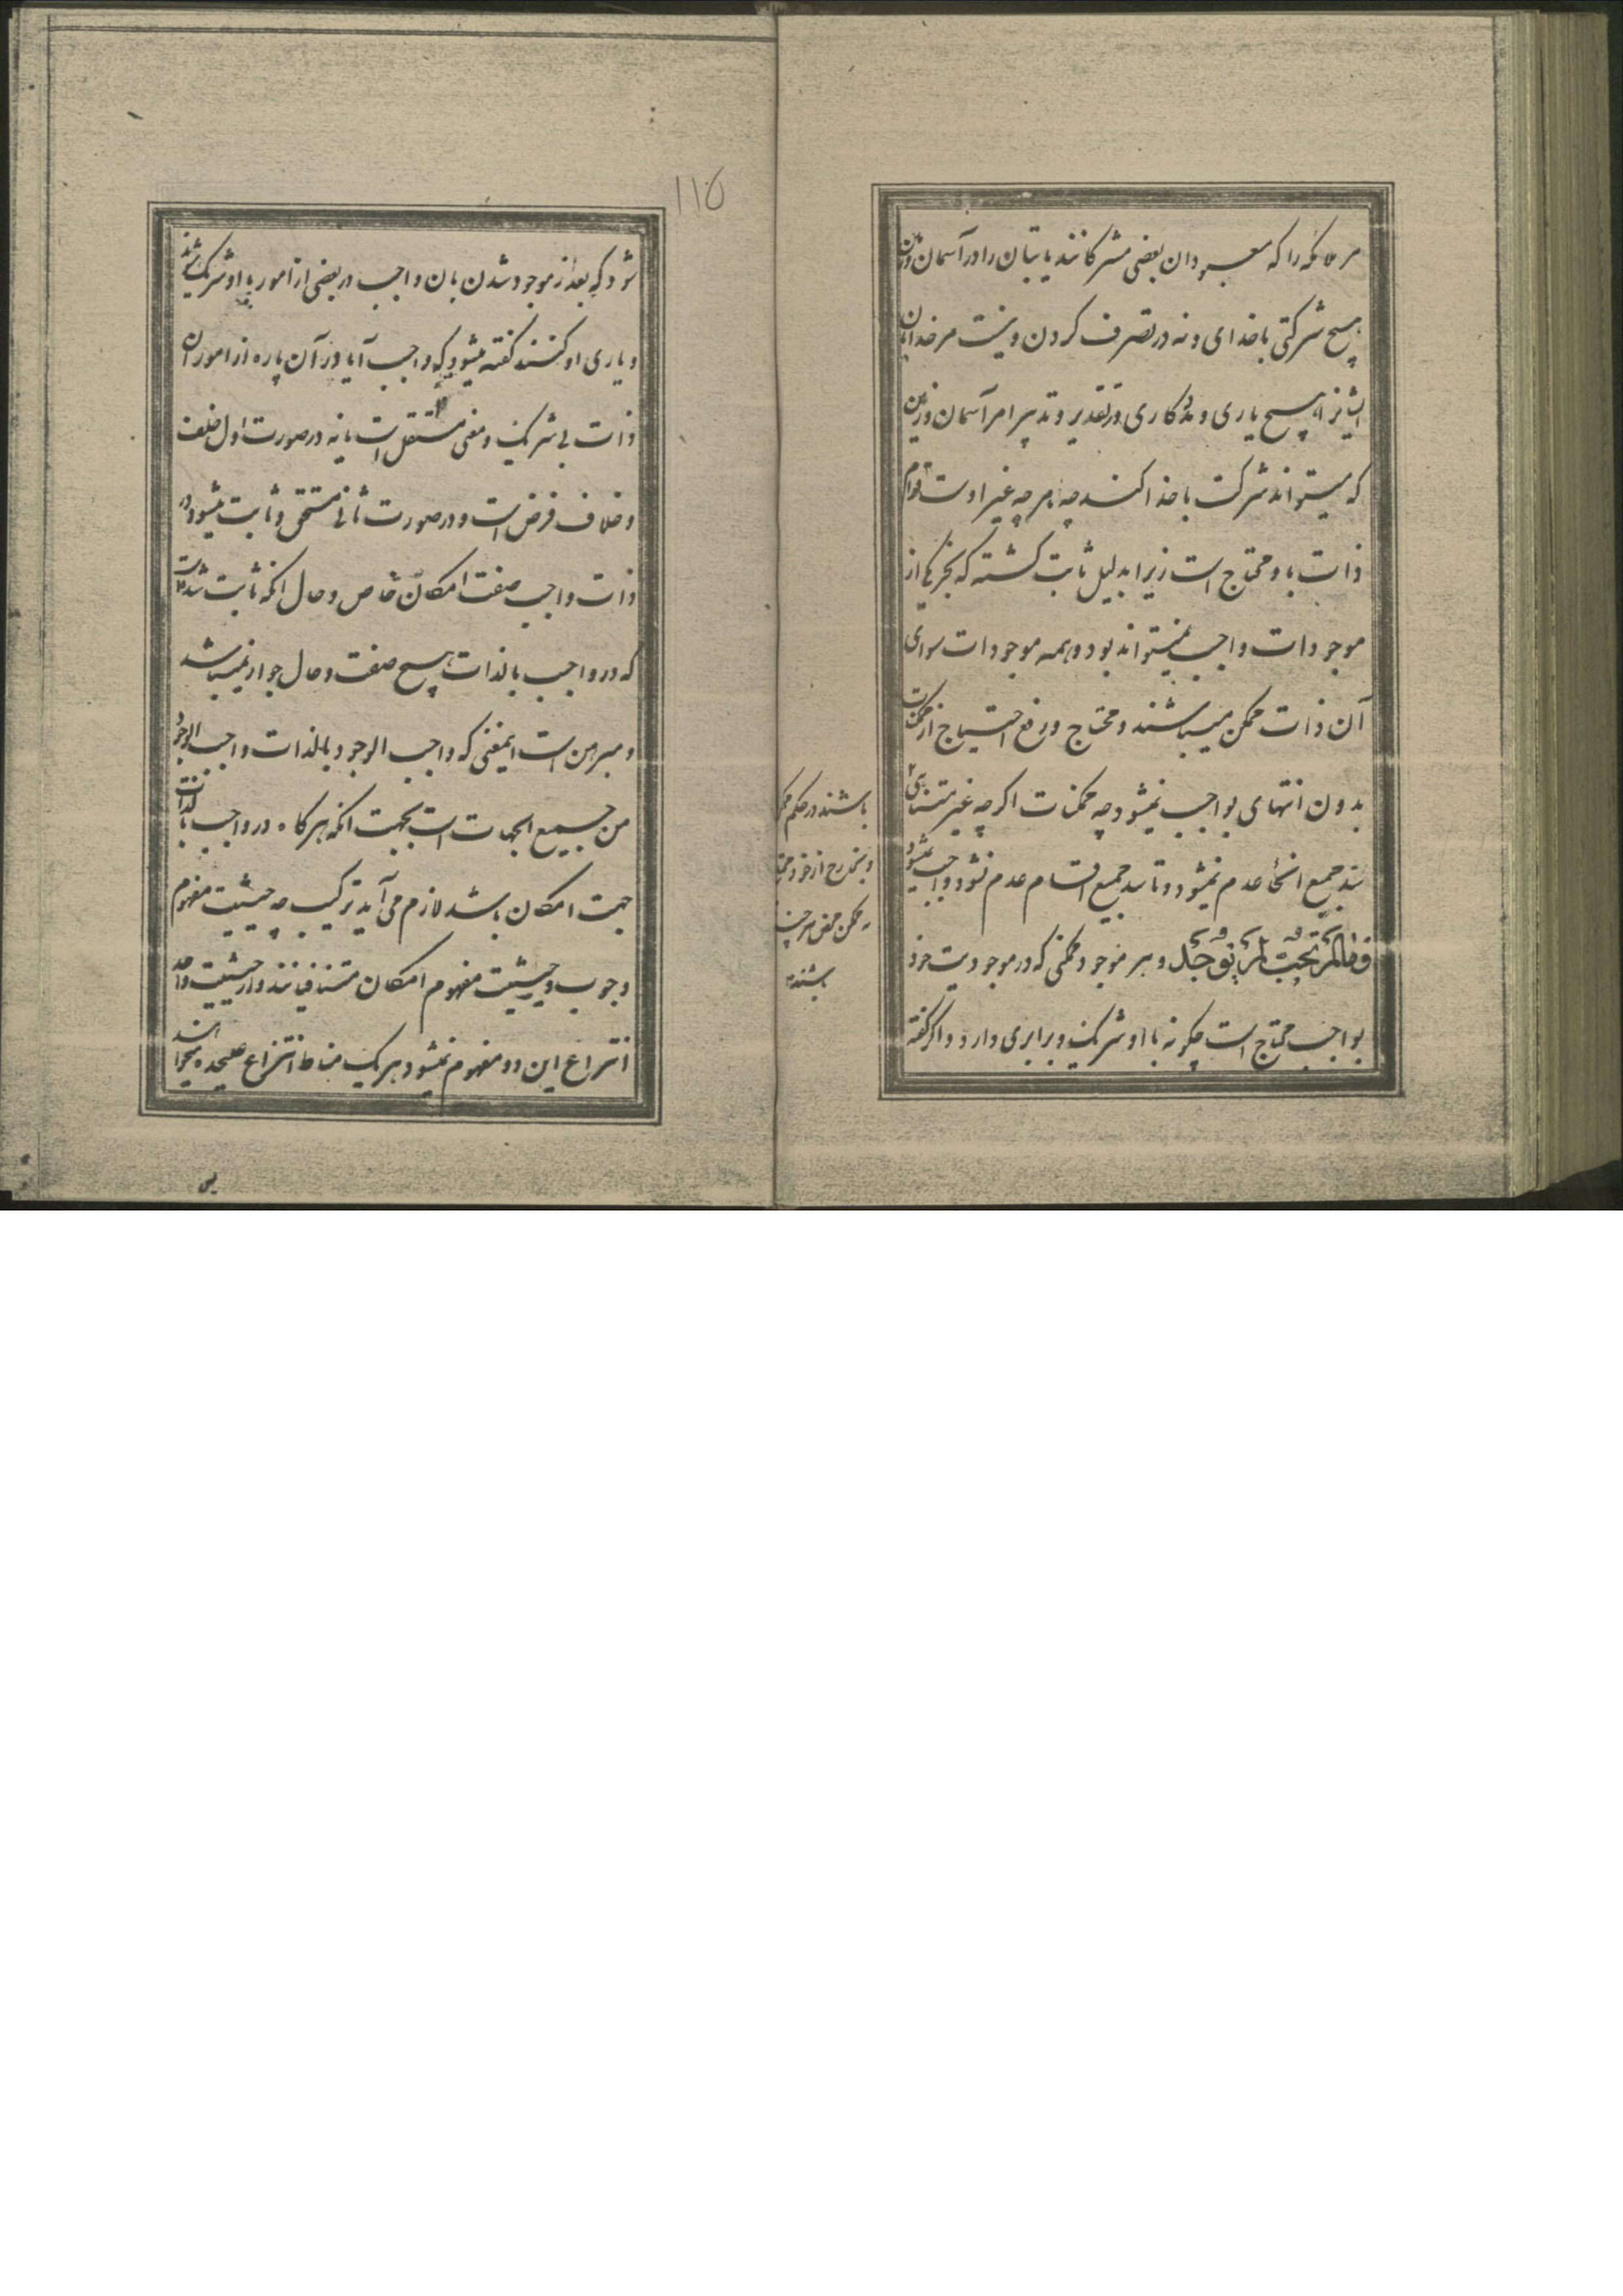 مر ملائکه را که معبودان بعضی مشرکانند یا بتان را در آسمان و زمین
هیچ شرکتی با خدای و نه در تصرف کردن و نیست مر خدا از آن
ایشانرا هیچ یاری و مددکاری در تقدیر و تدبیر امر آسمان و زمین
که میتواند شرکت با خدا کند چه هر چه غیر اوست قوام
ذات باو محتاج است زیرا بدلیل ثابت گشته که بجز یکی از
موجودات واجب نمیتواند بود و همه موجودات سوای
آن ذات ممکن میباشند و محتاج و رفع احتیاج از ممکنات
بدون انتهای بواجب نمیشود چه ممکنات اگرچه غیر متناهی
باشند در حکم
و بخارج از خود
ممکن محض هر چند
باشند
سد جمیع انحاء عدم نمیشود و تا سد جمیع اقسام عدم نشود واجب نمیشود
فما لم تجب لم توجد و هر موجود ممکنی که در موجودیت خود
بواجب محتاج است چگونه با او شریک و برابری دارد و اگر گفته
۱۱۵
شود که بعد از موجود شدن بان واجب در بعضی از امور با او شریک شوند
و یاری او کنند گفته میشود که واجب آیا در آن پاره از امور آن
ذات بی شریک و معین مستقل است یا نه در صورت اول خلف
و خلاف فرض است و در صورت ثانی متحقق و ثابت میشود در
ذات واجب صفت امکان خاص و حال آنکه ثابت شده است
که در واجب بالذات هیچ صفت و حال جواز نمیباشد
و مبرهن است اینمعنی که واجب الوجود بالذات واجب الوجود
من جمیع الجهات است بجهت آنکه هرگاه در واجب بالذات
جهت امکان باشد لازم می آید ترکیب چه حیثیت مفهوم
وجوب و حیثیت مفهوم امکان متنافیانند و از حیثیت واحد
انتزاع این دو مفهوم نمیشود هر یک مناط انتزاع علیحده میخواهند
پس